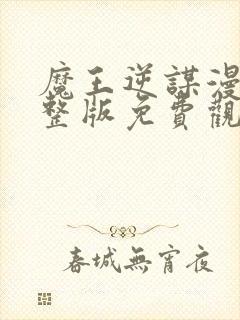 魔王逆謀漫
整版免費觀
春城無宵夜